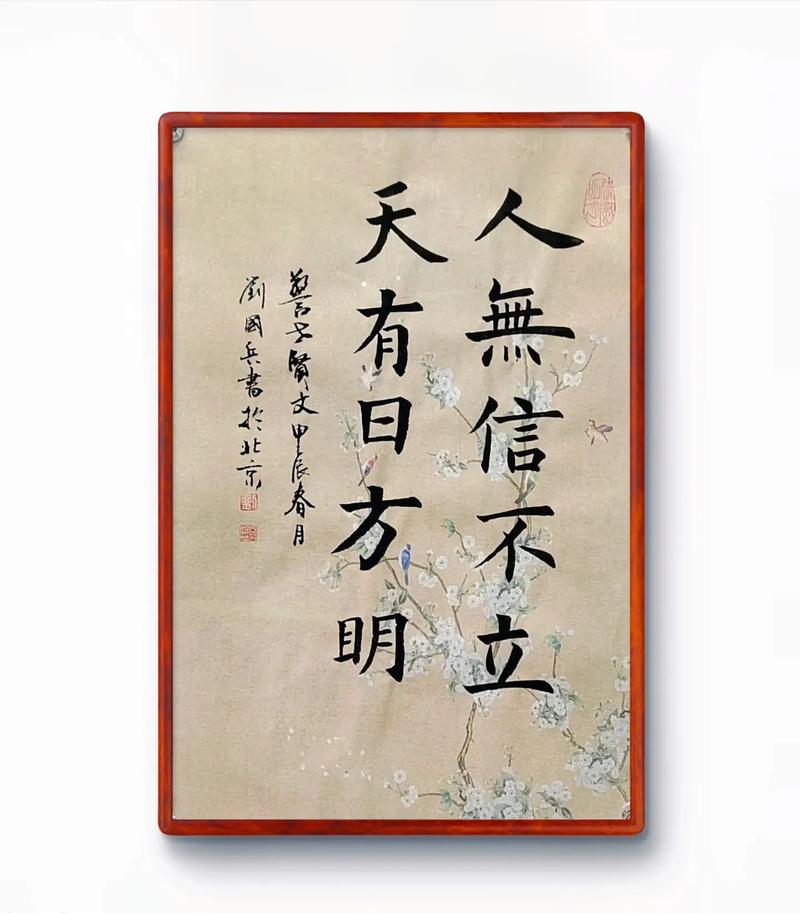 人無信不立
天有日方明
警世賢文甲辰春月
劉國兵書於北京